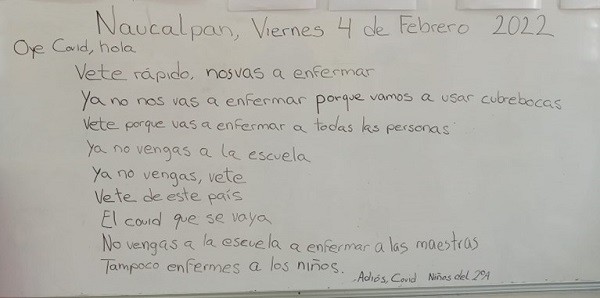 Naucalpan, Viernes 4 de Febrero 2022
Oye Covid, hola
Vete rápido, nosvas a enfermar
Ya no nos vas a enfermar porque vamos a usar cubrebocas
Vete porque vas a enfermar a todas las personas
Ya no vengas a la escuela
Ya no vengas, vete
Vete de este país
El covid que se vaya
No vengas a la escuela a enfermar a las maestras
Tampoco enfermes a los niños.
Adiós, Covid Niñas del 2ºA